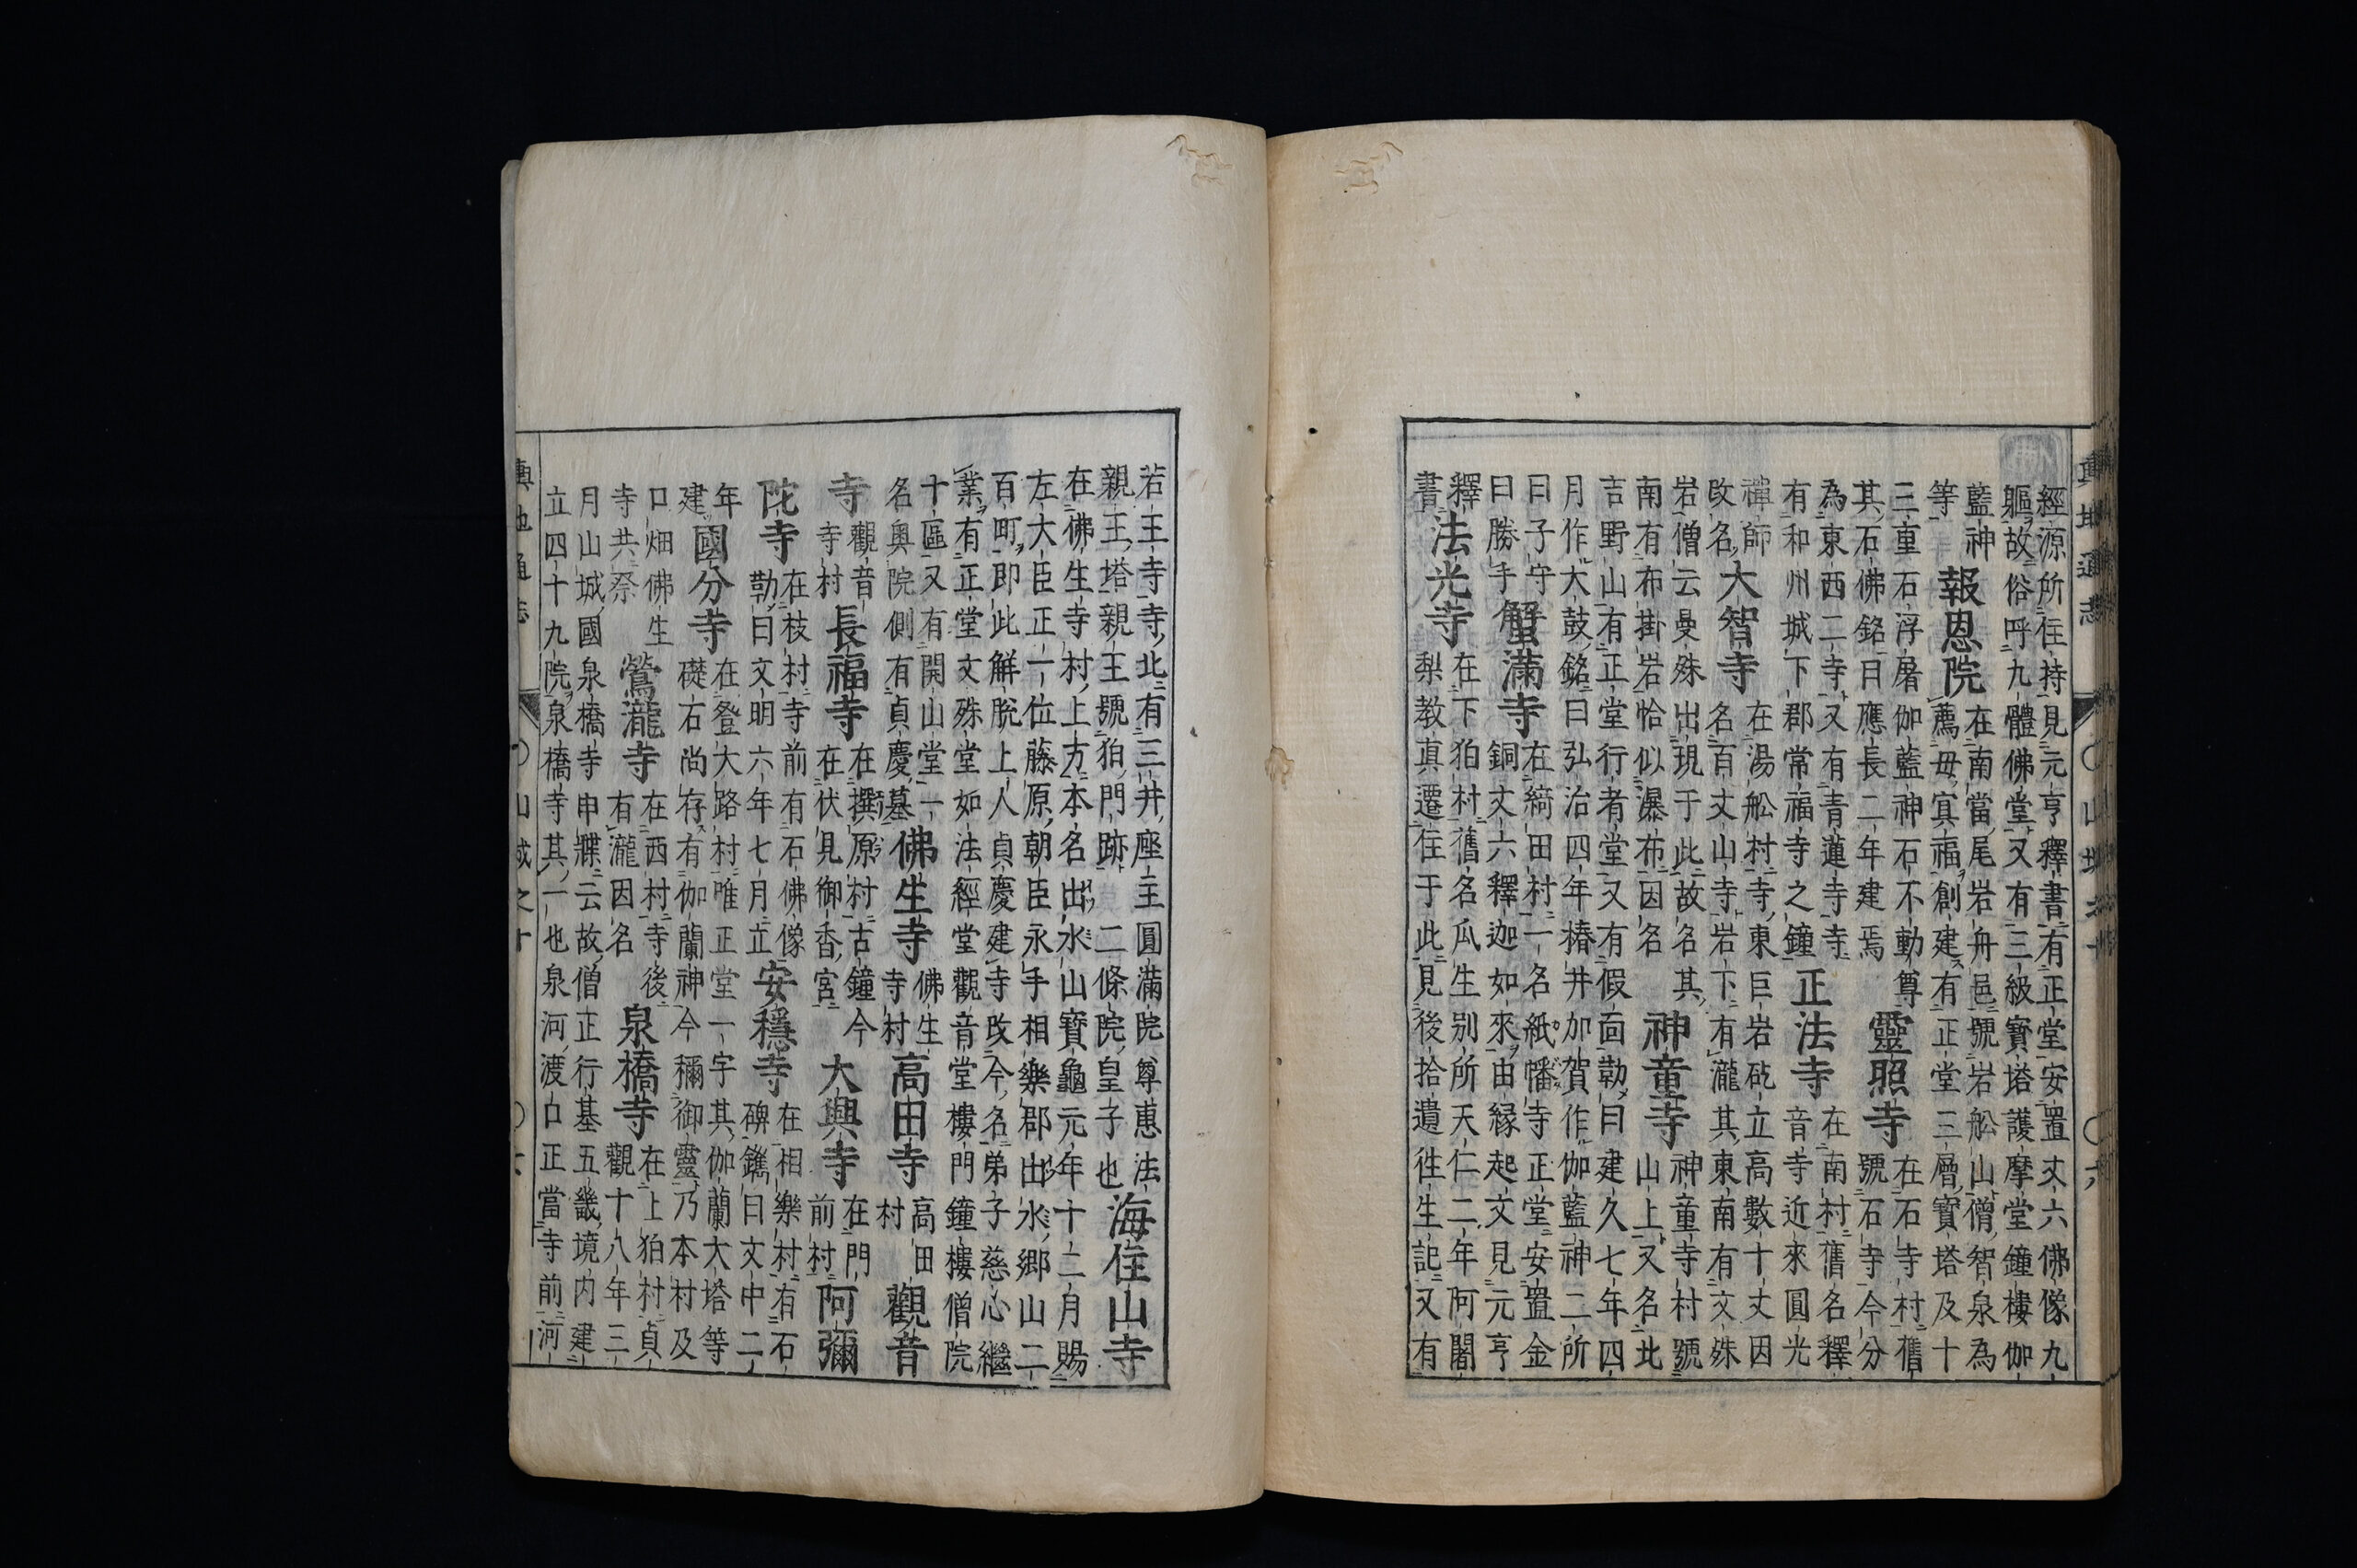 經源所住持見元亨釋書有正堂安置丈六佛像九
軀故俗呼九體佛堂又有三級寳塔護摩堂鐘樓伽
藍神
等
報恩院
在南當尾岩舟邑號岩舩山僧智泉為
薦母冥福創建有正堂三層寳塔及十
三重石浮屠伽藍神石不動尊
其石佛銘曰應長二年建焉
靈照寺
在石寺村舊
號石寺今分
為東西二寺又有青蓮寺寺
有和州城下郡常福寺之鐘
正法寺
在南村舊名釋
音寺近來圓光
禪師
改名
大智寺
在湯舩村寺東巨岩砿立高數十丈因
名百丈山寺岩下有瀧其東南有文殊
岩僧云曼殊出現于此故名其
南有布掛岩恰似瀑布因名
神童寺
神童寺村號
山上又名北
吉野山有正堂行者堂又有假面勒曰建久七年四
月作大鼓銘曰弘治四年椿井加賀作伽藍神二所
曰子守
曰勝手
蟹滿寺
在綺田村一名紙幡寺正堂安置金
銅丈六釋迦如來由縁起文見元亨
釋
書
法光寺
在下狛村舊名瓜生別所天仁二年阿闍
梨教真遷住于此見後拾遺徃生記又有
若王寺寺北有三井座主圓滿院尊惠法
親王塔親王號狛門跡二條院皇子也
海住山寺
在佛生寺村上方本名出水山寳龜元年十二月賜
左大臣正一位藤原朝臣永手相樂郡出水郷山二
百町即此解脱上人貞慶建寺改今名弟子慈心繼
業有正堂文殊堂如法經堂觀音堂樓門鐘樓僧院
十區又有開山堂一
名奥院側有貞慶墓
佛生寺
佛生
寺村
高田寺
高田
村
觀音
寺
觀音
寺村
長福寺
在撰原村古鐘今
在伏見御香宮
大興寺
在門
前村
阿彌
陀寺
在枝村寺前有石佛像
勒曰文明六年七月立
安穩寺
在相樂村有石
碑鐫曰文中二
年
建
國分寺
在登大路村唯正堂一宇其伽蘭大塔等
礎石尚存有伽蘭神今稱御靈乃本村及
口畑佛生
寺共祭
鶯瀧寺
在西村寺後
有瀧因名
泉橋寺
在上狛村貞
觀十八年三
月山城國泉橋寺申牒云故僧正行基五畿境内建
立四十九院泉橋寺其一也泉河渡口正當寺前河